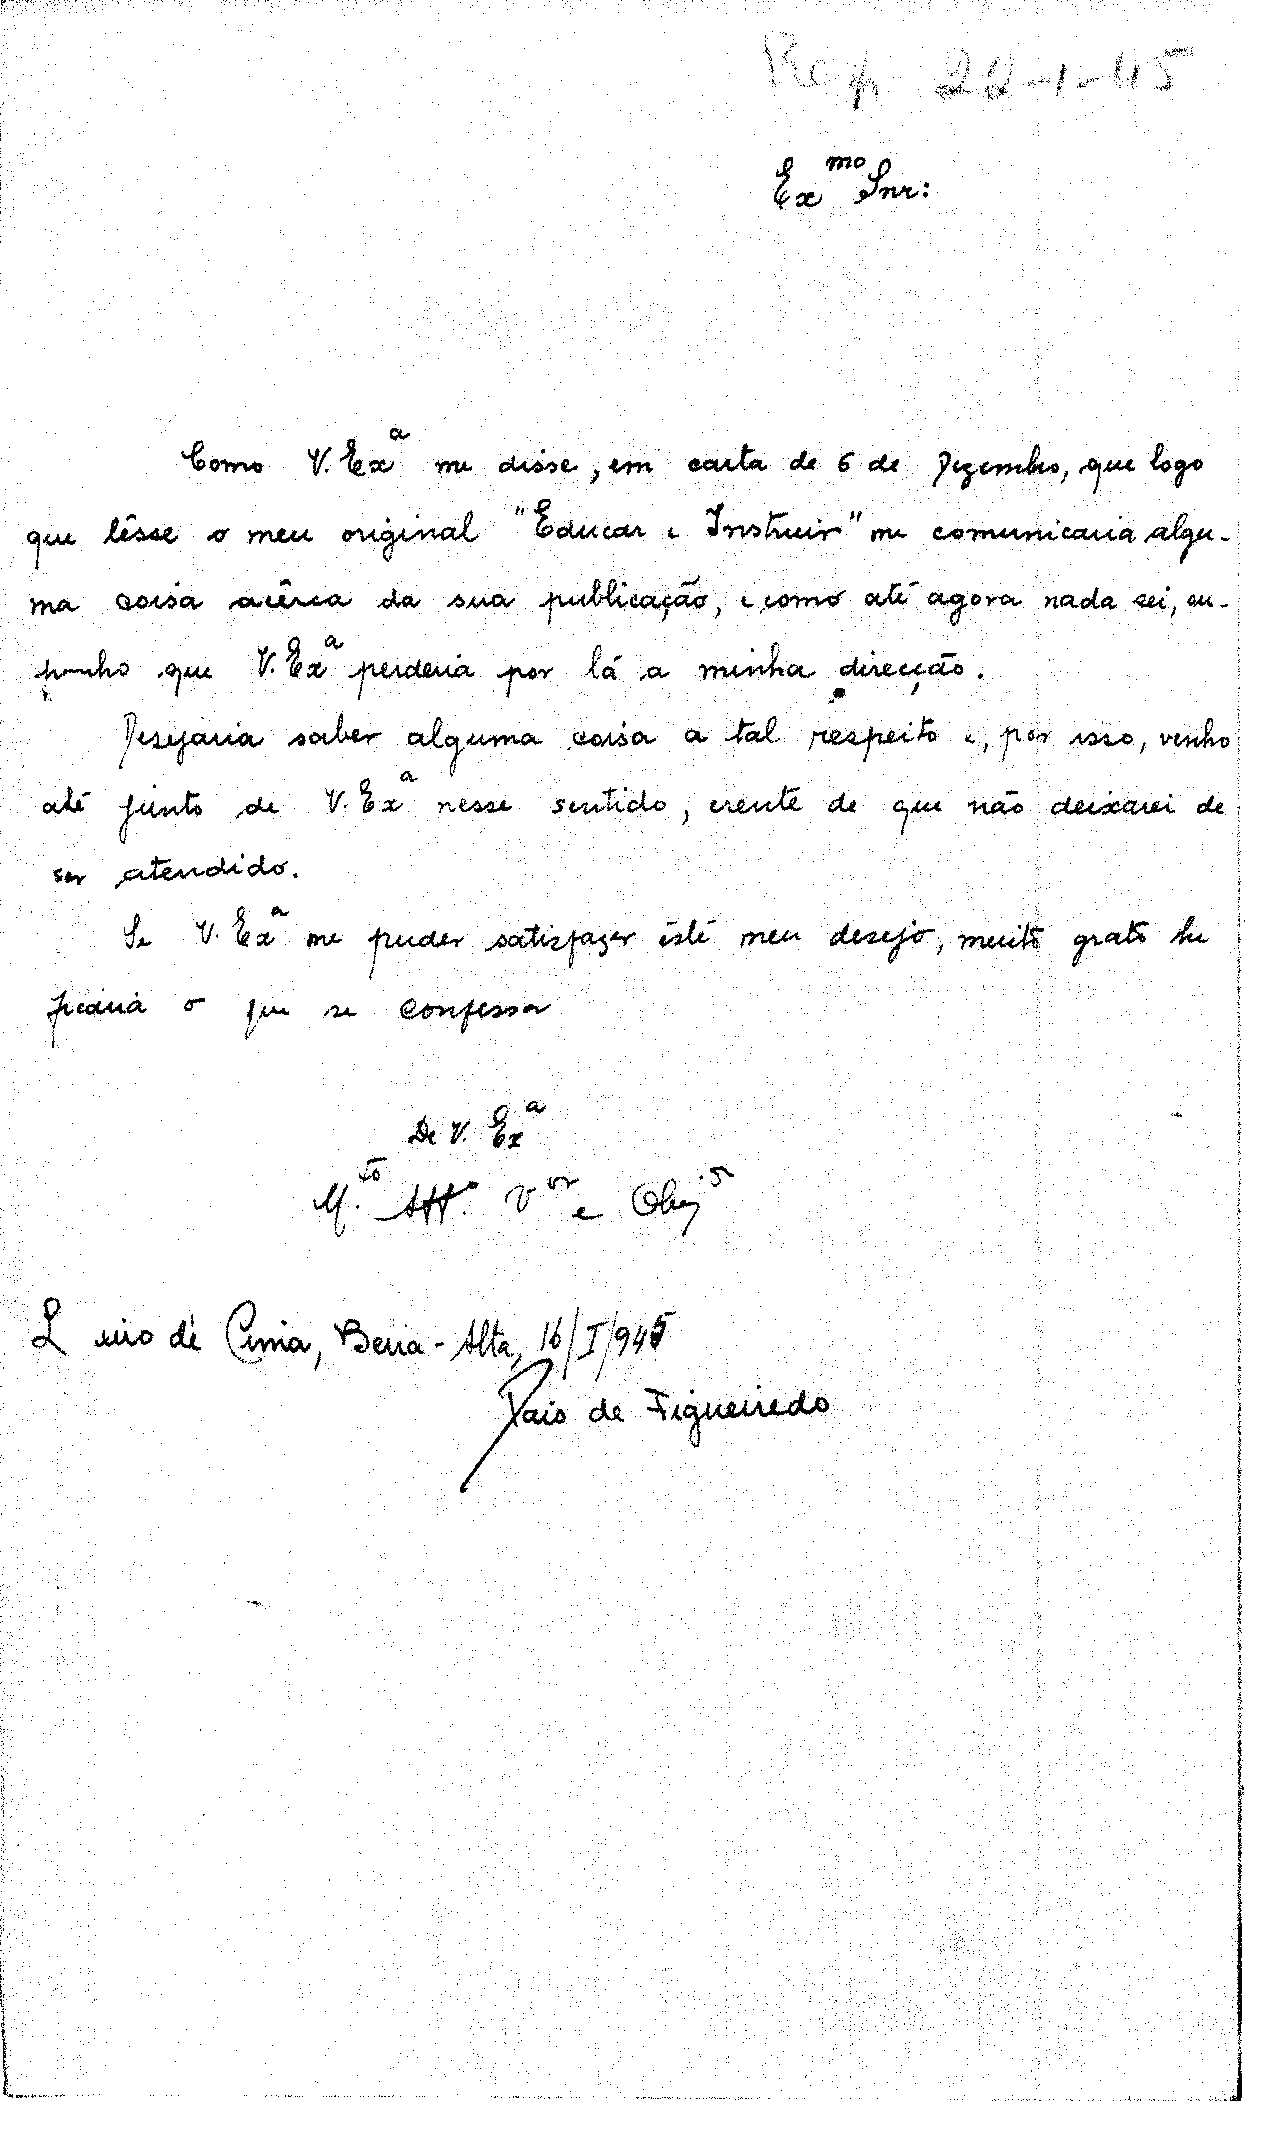 Resp. 22-1-45
Ex.mo Snr:
Como V. Ex.a me disse, em carta de 6 de Dezembro, que logo
que lêsse o meu original "Educar e Instruir" me comunicaria algu-
ma coisa acêrca da sua publicação, e como até agora nada sei, su-
ponho que V. Ex.a perderia por lá a minha direcção.
Desejaria saber alguma coisa a tal respeito e, por isso, venho
até junto de V. Ex.a nesse sentido, crente de que não deixarei de
ser atendido.
Se V. Ex.a me puder satisfazer êste meu desejo, muito grato lhe
ficaria o que se confessa
De V. Ex.a
M.to Att.o V.or e Obg.o
de Cima, Beira-Alta, 16/I/945
Pais de Figueiredo